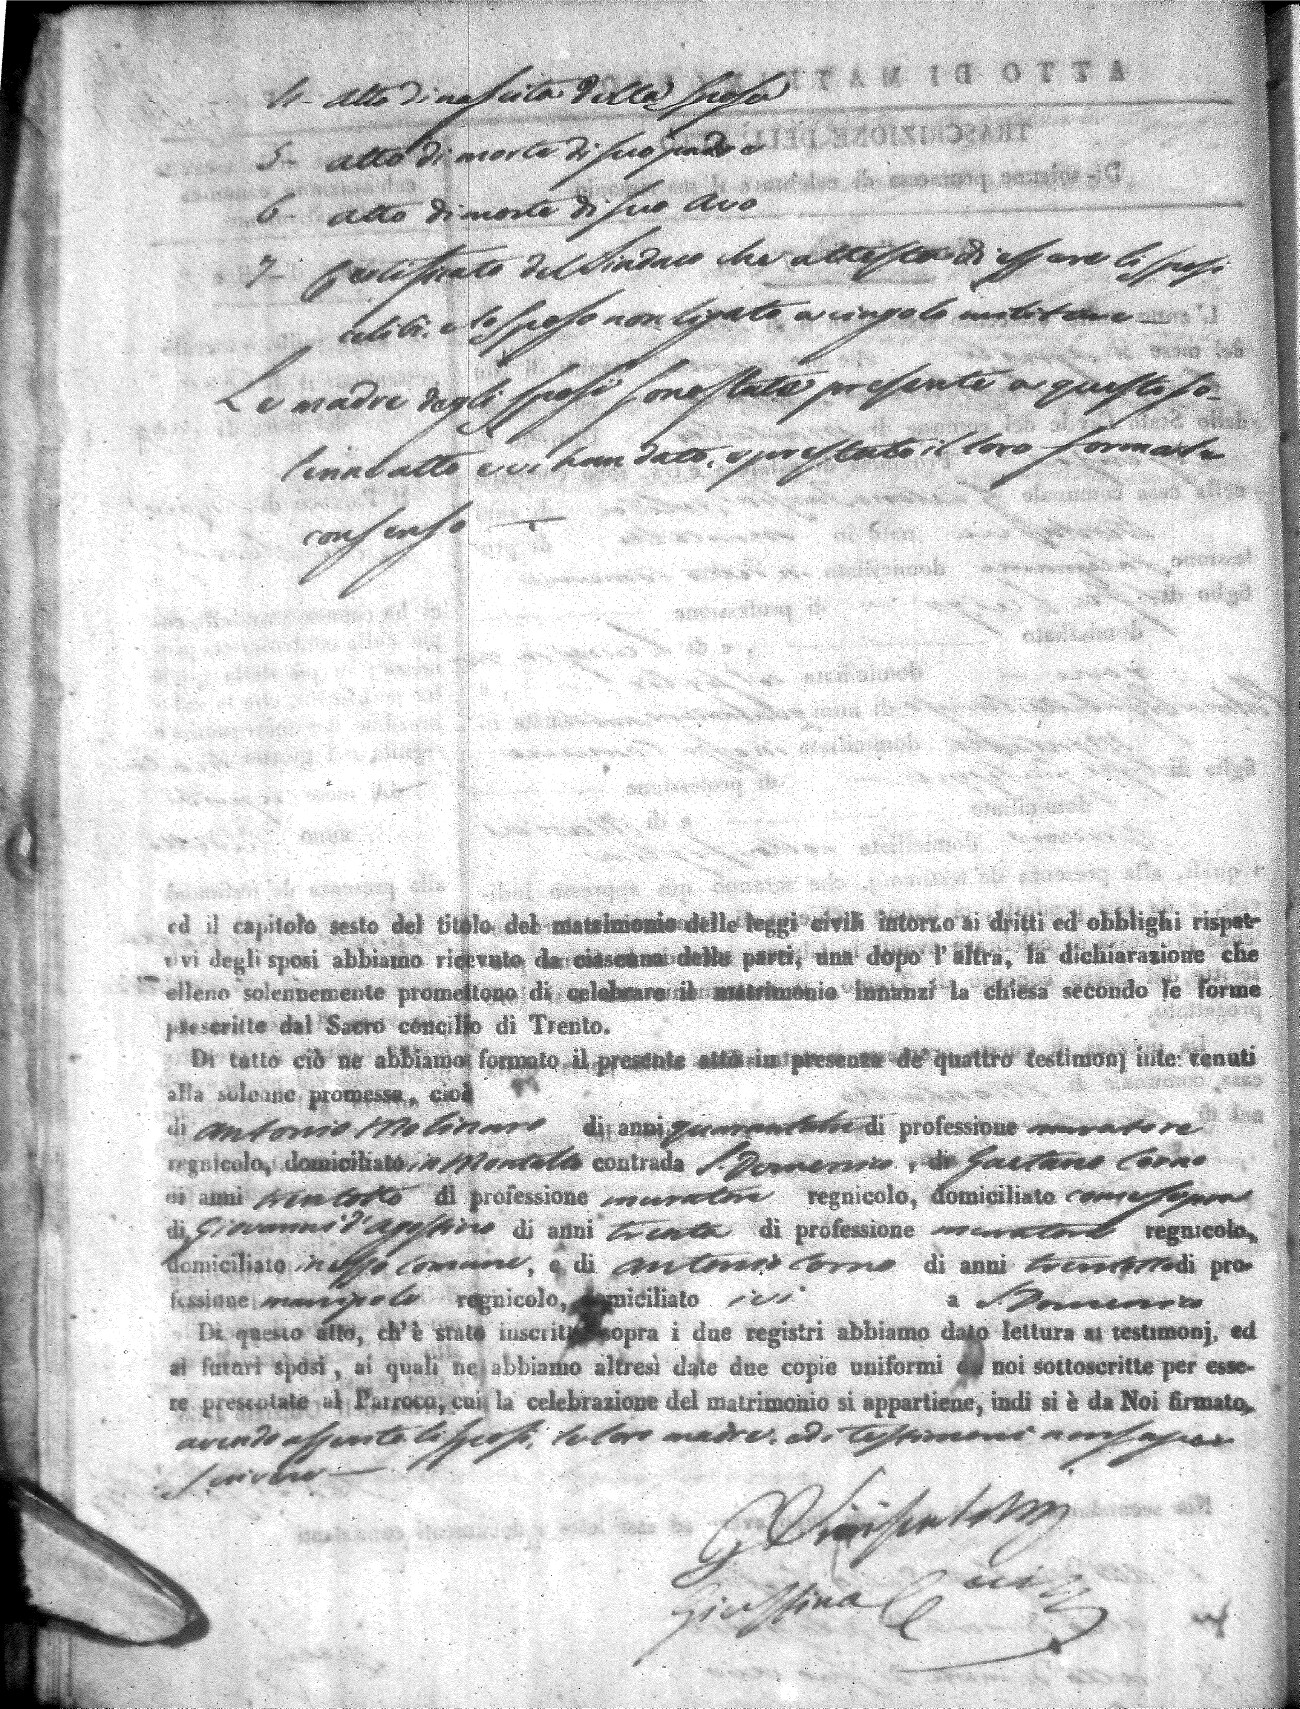 4- Atto di nascita della sposa
5- Atto di morte di suo padre
6- Atto di morte di suo avo
7- Certificato del Sindaco che attesta di essere li sposi
celibi, e lo sposo non ligato a cingolo militare
Le madre degli sposi sono state presente a questo so-
lenne atto e vi han dato, e prestato il loro formale
consenso
ed il capitolo sesto del titolo del matrimonio delle leggi civili intorno ai dritti ed obblighi rispet-
tivi degli sposi abbiamo ricevuto da ciascuna delle parti, una dopo l'altra, la dichiarazione che
elleno solennemente promettono di celebrare il matrimonio innanzi la chiesa secondo le forme
prescritte dal Sacro concilio di Trento.
Di tutto ciò ne abbiamo formato il presente atto in presenza de' quattro testimonj inter venuti
alla solenne promessa, cioè
di Antonio Molinaro di anni di professione muratore
regnicolo, domiciliato in Montella contrada S. Domenico, di Gaetano Corno
di anni trentotto di professione muratore regnicolo, domiciliato come sopra
di Giovanni d'Agostino di anni trenta di professione muratore regnicolo,
domiciliato in esso comune, e di Antonio Corno di anni di pro-
fessione manipolo regnicolo, domiciliato ivi a S. Domenico
Di questo atto, ch'è stato inscritto sopra i due registri abbiamo dato lettura ai testimonj, ed
ai futuri sposi, ai quali ne abbiamo altresì date due copie uniformi da noi sottoscritte per esse-
re presentate al Parroco, cui la celebrazione del matrimonio si appartiene, indi si è da Noi firmato,
avendo asserito li sposi, le loro madre, ed i testimoni non saper
scrivere